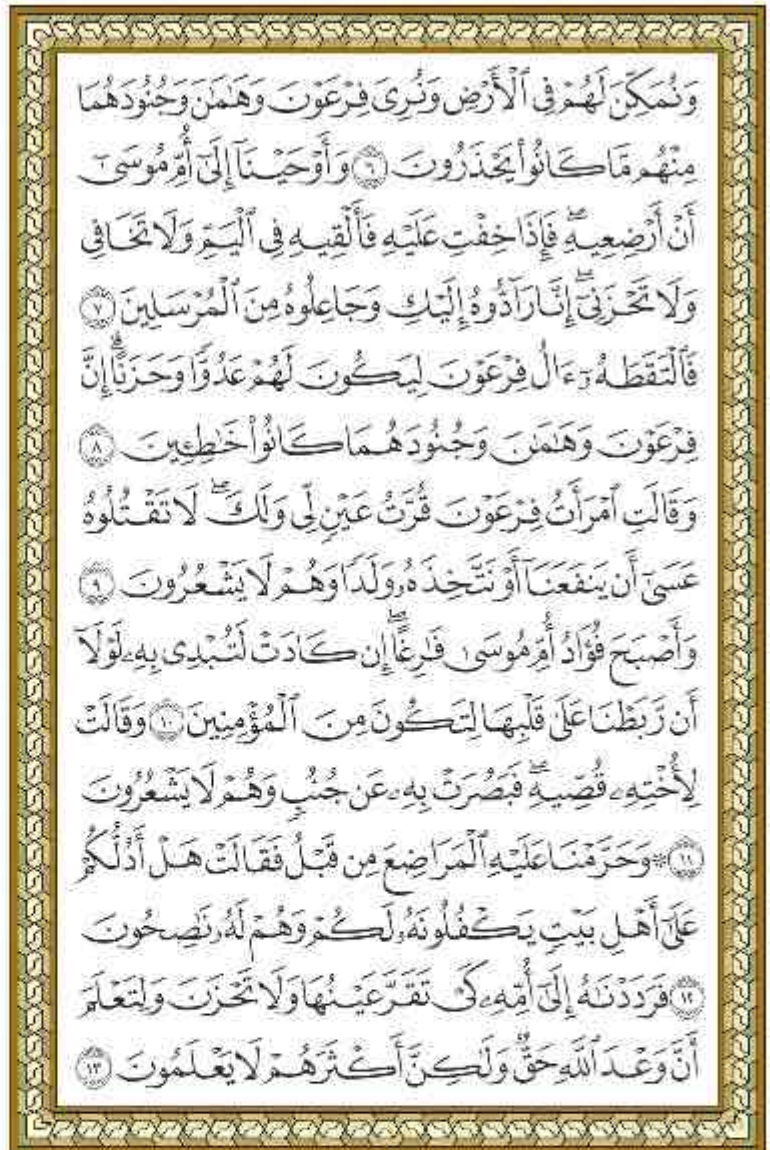 وَنُمَكِّنَ لَهُمْ فِى ٱلْأَرْضِ وَنُرِىَ فِرْعَوْنَ وَهَٰمَٰنَ وَجُنُودَهُمَا
مِنْهُم مَّا كَانُوا۟ يَحْذَرُونَ ٦ وَأَوْحَيْنَآ إِلَىٰٓ أُمِّ مُوسَىٰٓ
أَنْ أَرْضِعِيهِ ۖ فَإِذَا خِفْتِ عَلَيْهِ فَأَلْقِيهِ فِى ٱلْيَمِّ وَلَا تَخَافِى
وَلَا تَحْزَنِىٓ ۖ إِنَّا رَآدُّوهُ إِلَيْكِ وَجَاعِلُوهُ مِنَ ٱلْمُرْسَلِينَ ٧
فَٱلْتَقَطَهُۥٓ ءَالُ فِرْعَوْنَ لِيَكُونَ لَهُمْ عَدُوًّا وَحَزَنًا ۗ إِنَّ
فِرْعَوْنَ وَهَٰمَٰنَ وَجُنُودَهُمَا كَانُوا۟ خَٰطِـِٔينَ ٨
وَقَالَتِ ٱمْرَأَتُ فِرْعَوْنَ قُرَّتُ عَيْنٍ لِّى وَلَكَ ۖ لَا تَقْتُلُوهُ
عَسَىٰٓ أَن يَنفَعَنَآ أَوْ نَتَّخِذَهُۥ وَلَدًا وَهُمْ لَا يَشْعُرُونَ ٩
وَأَصْبَحَ فُؤَادُ أُمِّ مُوسَىٰ فَٰرِغًا ۖ إِن كَادَتْ لَتُبْدِى بِهِۦ لَوْلَآ
أَن رَّبَطْنَا عَلَىٰ قَلْبِهَا لِتَكُونَ مِنَ ٱلْمُؤْمِنِينَ ١٠ وَقَالَتْ
لِأُخْتِهِۦ قُصِّيهِ ۖ فَبَصُرَتْ بِهِۦ عَن جُنُبٍ وَهُمْ لَا يَشْعُرُونَ
١١ ۞ وَحَرَّمْنَا عَلَيْهِ ٱلْمَرَاضِعَ مِن قَبْلُ فَقَالَتْ هَلْ أَدُلُّكُمْ
عَلَىٰٓ أَهْلِ بَيْتٍ يَكْفُلُونَهُۥ لَكُمْ وَهُمْ لَهُۥ نَٰصِحُونَ
١٢ فَرَدَدْنَٰهُ إِلَىٰٓ أُمِّهِۦ كَىْ تَقَرَّ عَيْنُهَا وَلَا تَحْزَنَ وَلِتَعْلَمَ
أَنَّ وَعْدَ ٱللَّهِ حَقٌّ وَلَٰكِنَّ أَكْثَرَهُمْ لَا يَعْلَمُونَ ١٣